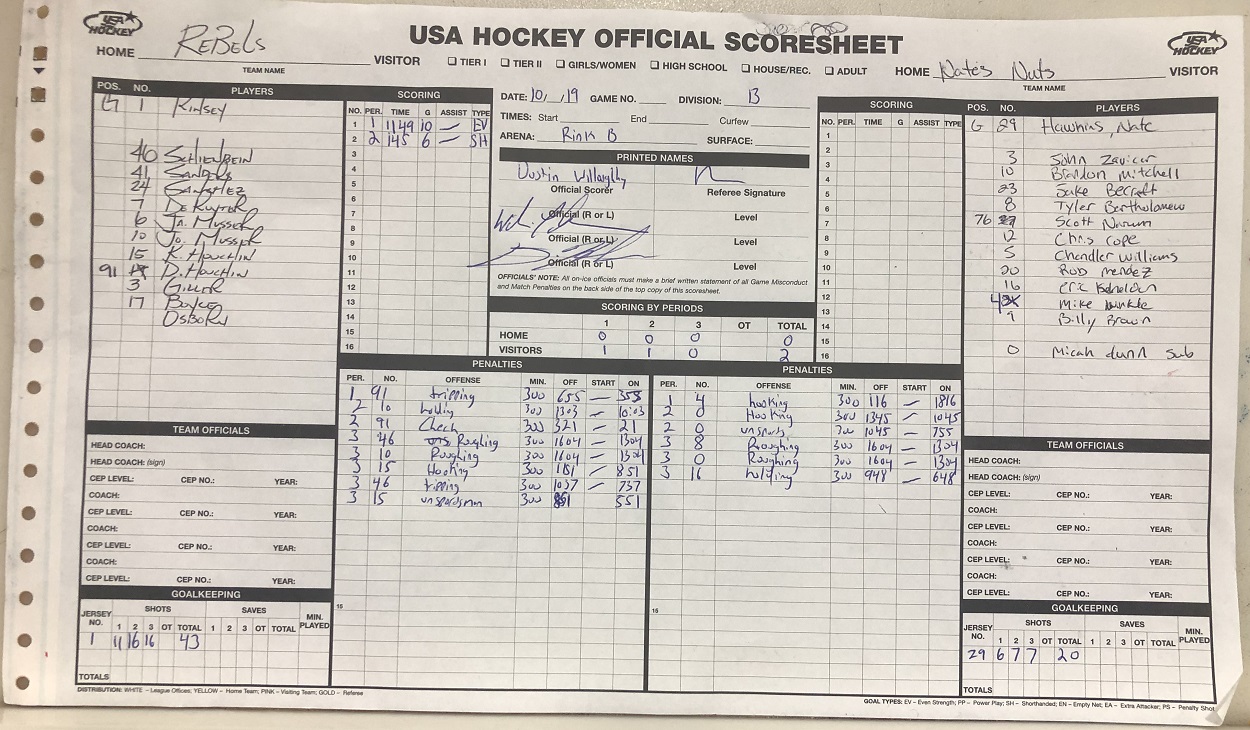 USA HOCKEY
USA HOCKEY OFFICIAL SCORESHEET
USA HOCKEY
HOME REBELS VISITOR
TEAM NAME
☐ TIER I ☐ TIER II ☐ GIRLS/WOMEN ☐ HIGH SCHOOL ☐ HOUSE/REC. ☐ ADULT
HOME Nate's Nuts VISITOR
TEAM NAME
POS. NO. PLAYERS
G 1 KINSEY
46
41 SANDERS
24 SANCHEZ
7 DERUYTER
6 JA. MUSSER
10 JO. MUSSER
15 K. HOUCHIN
91 D. HOUCHIN
3
17 BOYCE
OSBORN
SCORING
NO. PER. TIME G ASSIST TYPE
1 1 1149 10 — EV
2 2 145 6 — SH
3
4
5
6
7
8
9
10
11
12
13
14
15
16
DATE: 10/ /19 GAME NO. DIVISION: B
TIMES: Start End Curfew
ARENA: Rink B SURFACE:
PRINTED NAMES
Dustin
Official Scorer Referee Signature
Official (R or L) Level
Official (R or L) Level
Official (R or L) Level
OFFICIALS' NOTE: All on-ice officials must make a brief written statement of all Game Misconduct
and Match Penalties on the back side of the top copy of this scoresheet.
SCORING BY PERIODS
1 2 3 OT TOTAL
HOME 0 0 0 0
VISITORS 1 1 0 2
SCORING
NO. PER. TIME G ASSIST TYPE
1
2
3
4
5
6
7
8
9
10
11
12
13
14
15
16
POS. NO. PLAYERS
G 29 Hawkins, Nate
3 John Zavicar
10 Brandon Mitchell
23 Jake Becraft
8 Tyler Bartholomew
76 Scott Narum
12 Chris Cope
5 Chandler Williams
20 Rob Mendez
16 eric
Mike
9 Billy Brown
0 Micah dunn sub
PENALTIES
PER. NO. OFFENSE MIN. OFF START ON
1 91 tripping 300 655 — 355
2 10 holding 300 1303 — 10:03
2 91 Check 300 321 — 21
3 46 Roughing 300 1604 — 1304
3 10 Roughing 300 1604 — 1304
3 15 Hooking 300 1151 — 851
3 46 tripping 300 1037 — 737
3 15 unsportsmen 300 851 551
15
PENALTIES
PER. NO. OFFENSE MIN. OFF START ON
1 4 hooking 300 116 — 1816
2 0 Hooking 300 1345 — 1045
2 0 unsports 300 1045 — 755
3 8 Roughing 300 1604 — 1304
3 0 Roughing 300 1604 — 1304
3 16 holding 300 948 — 648
15
TEAM OFFICIALS
HEAD COACH:
HEAD COACH: (sign)
CEP LEVEL: CEP NO.: YEAR:
COACH:
CEP LEVEL: CEP NO.: YEAR:
COACH:
CEP LEVEL: CEP NO.: YEAR:
COACH:
CEP LEVEL: CEP NO.: YEAR:
GOALKEEPING
JERSEY NO. SHOTS SAVES MIN. PLAYED
1 2 3 OT TOTAL 1 2 3 OT TOTAL
1 11 16 16 43
TOTALS
TEAM OFFICIALS
HEAD COACH:
HEAD COACH: (sign)
CEP LEVEL: CEP NO.: YEAR:
COACH:
CEP LEVEL: CEP NO.: YEAR:
COACH:
CEP LEVEL: CEP NO.: YEAR:
COACH:
CEP LEVEL: CEP NO.: YEAR:
GOALKEEPING
JERSEY NO. SHOTS SAVES MIN. PLAYED
1 2 3 OT TOTAL 1 2 3 OT TOTAL
29 6 7 7 20
TOTALS
DISTRIBUTION: WHITE – League Offices; YELLOW – Home Team; PINK – Visiting Team; GOLD – Referee
GOAL TYPES: EV – Even Strength; PP – Power Play; SH – Shorthanded; EN – Empty Net; EA – Extra Attacker; PS – Penalty Shot